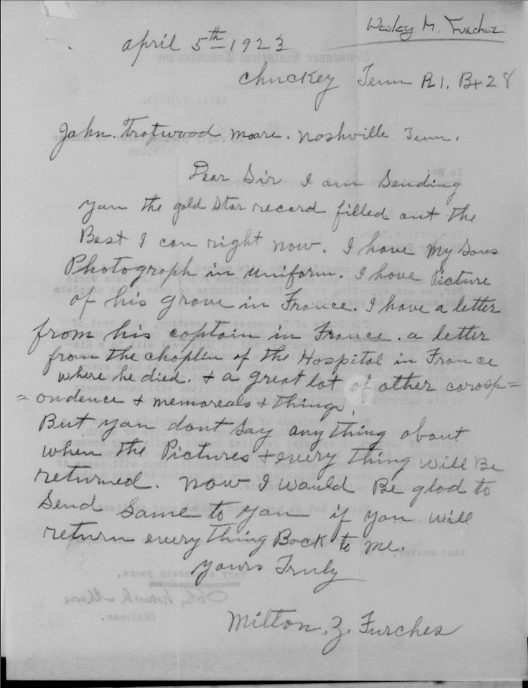 Wesley M. Furches
april 5th 1923
Chuckey Tenn R1. Bx 28
John. Trotwood moore. noshville Tenn.
Dear Sir I am Sending
you the gold Star record filled out the
Best I can right now. I have my Sons
Photograph in uniform. I have Picture
of his grave in France. I have a letter
from his captain in France. a letter
from the chaplen of the Hospital in France
where he died. & a great lot of other corosp=
= ondence & memoreals & things.
But you dont Say any thing about
when the Pictures & every thing will Be
returned. now I would Be glad to
Send Same to you if you will
return every thing Back to me.
yours Truly
Milton. Z. Furches